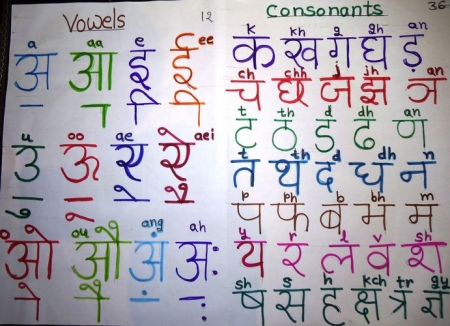 Vowels 12
a aa e ee
अ आ इ ई
ा ि ी
u oo ae aei
उ ऊ ए ऐ
ु ू े ै
o ou ang ah
ओ औ अं अः
ो ौ ं ः
Consonants 36
k kh g gh an
क ख ग घ ङ
ch chh j jh an
च छ ज झ ञ
t th d dh an
ट ठ ड ढ ण
t th d dh n
त थ द ध न
p ph b bh m
प फ ब भ म
y r l v sh
य र ल व श
sh s h kch tr gy
ष स ह क्ष त्र ज्ञ